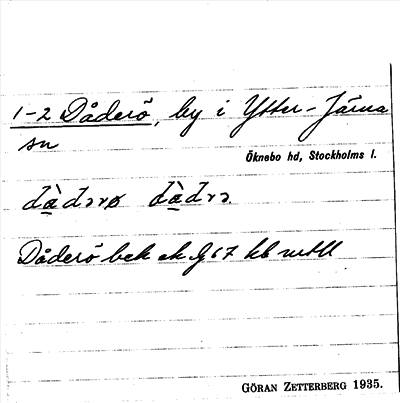 1-2 Dåderö, by i Ytter-Järna
sn
Öknebo hd, Stockholms l.
dàdɘrø dàdrɘ
Dåderö bek ek G 67 hb
GÖRAN ZETTERBERG 1935.